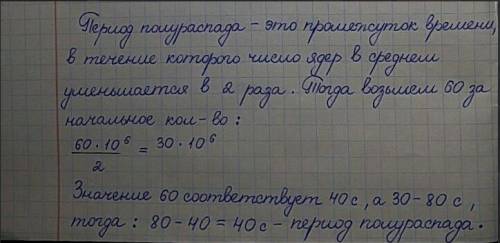 Период полураспада - это промежуток времени,
в течение которого число ядер в среднем
уменьшается в 2 раза. Тогда возьмем 60 за
начальное кол-во:
60·10⁶/2 = 30·10⁶
Значение 60 соответствует 40с, а 30-80с,
тогда: 80-40=40с- период полураспада.